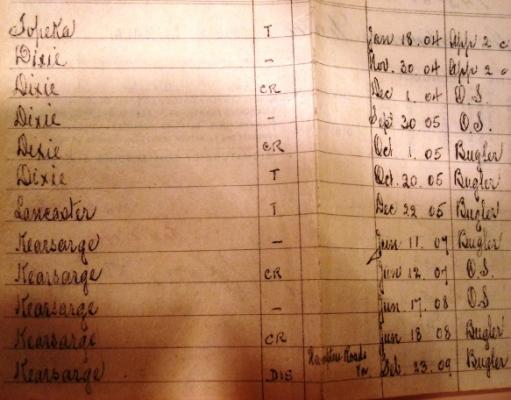 Topeka T Jan 18. 04 App 2 c
Dixie - Nov. 30 04 App 2 c
Dixie CR Dec 1. 04 O.S.
Dixie - Sept 30 05 O.S.
Dixie CR Oct. 1. 05 Bugler
Dixie T Oct. 20. 05 Bugler
Lancaster T Dec 22 05 Bugler
Kearsarge - Jun 11. 07 Bugler
Kearsarge CR Jun 12. 07 O.S.
Kearsarge - Jun. 17. 08 O.S
Kearsarge CR Jun 18 08 Bugler
Kearsarge DIS Hampton Roads Va Feb. 23. 09 Bugler